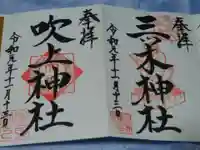 奉拝
三木神社
令和元年十一月十三日
奉拝
吹上神社
令和元年十一月十三日